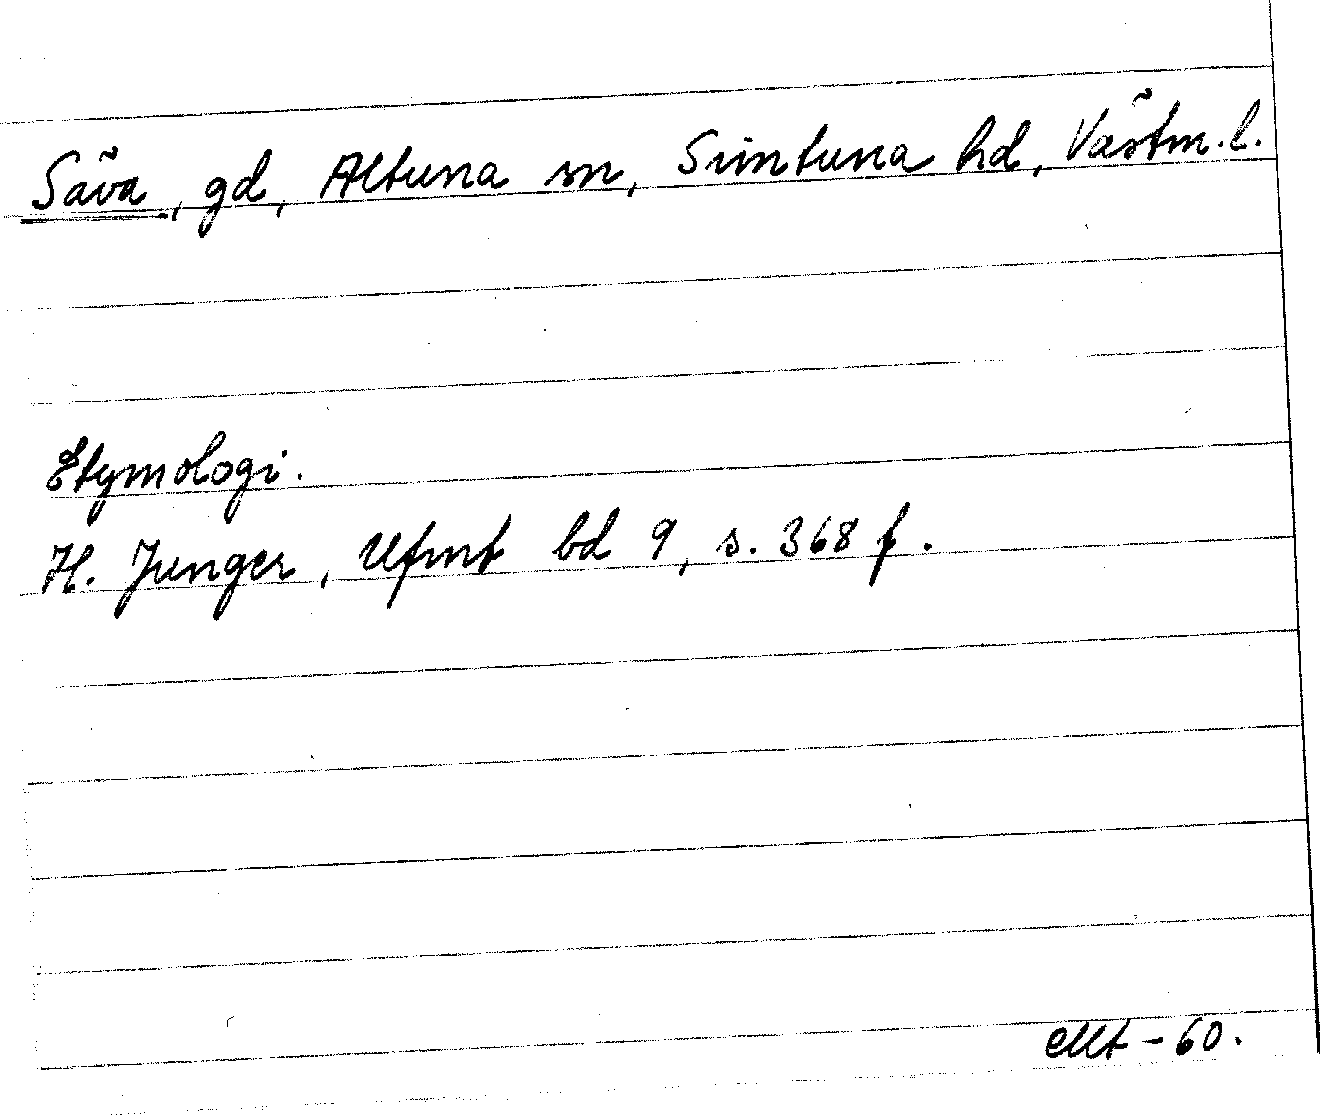 Säva, gd, Altuna sn, Simtuna hd, Västm. l.
Etymologi.
H. Junger, Ufmt bd 9, s. 368 f.
-60.